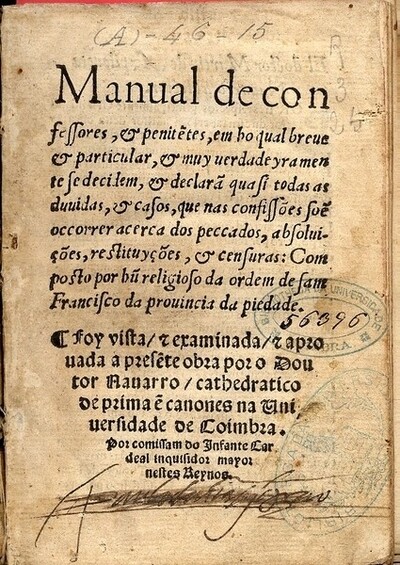 (A)-46-15
R
3
Manual de con
fessores, & penitẽtes, em ho qual breue
& particular, & muy verdadeyramen
te se decidem, & declarã quasi todas as
duuidas, & casos, que nas confissões soẽ
occorrer acerca dos peccados, absolui-
ções, restituyções, & censuras: Com
posto por hũ religioso da ordem de sam
Francisco da prouincia da piedade.
56396
¶ Foy vista / & examinada / & apro
uada a presẽte obra por o Dou
tor Nauarro / cathedratico
de prima ẽ canones na Uni
uersidade de Coimbra.
Por comissam do Infante Car
deal inquisidor mayor
nestes Reynos.